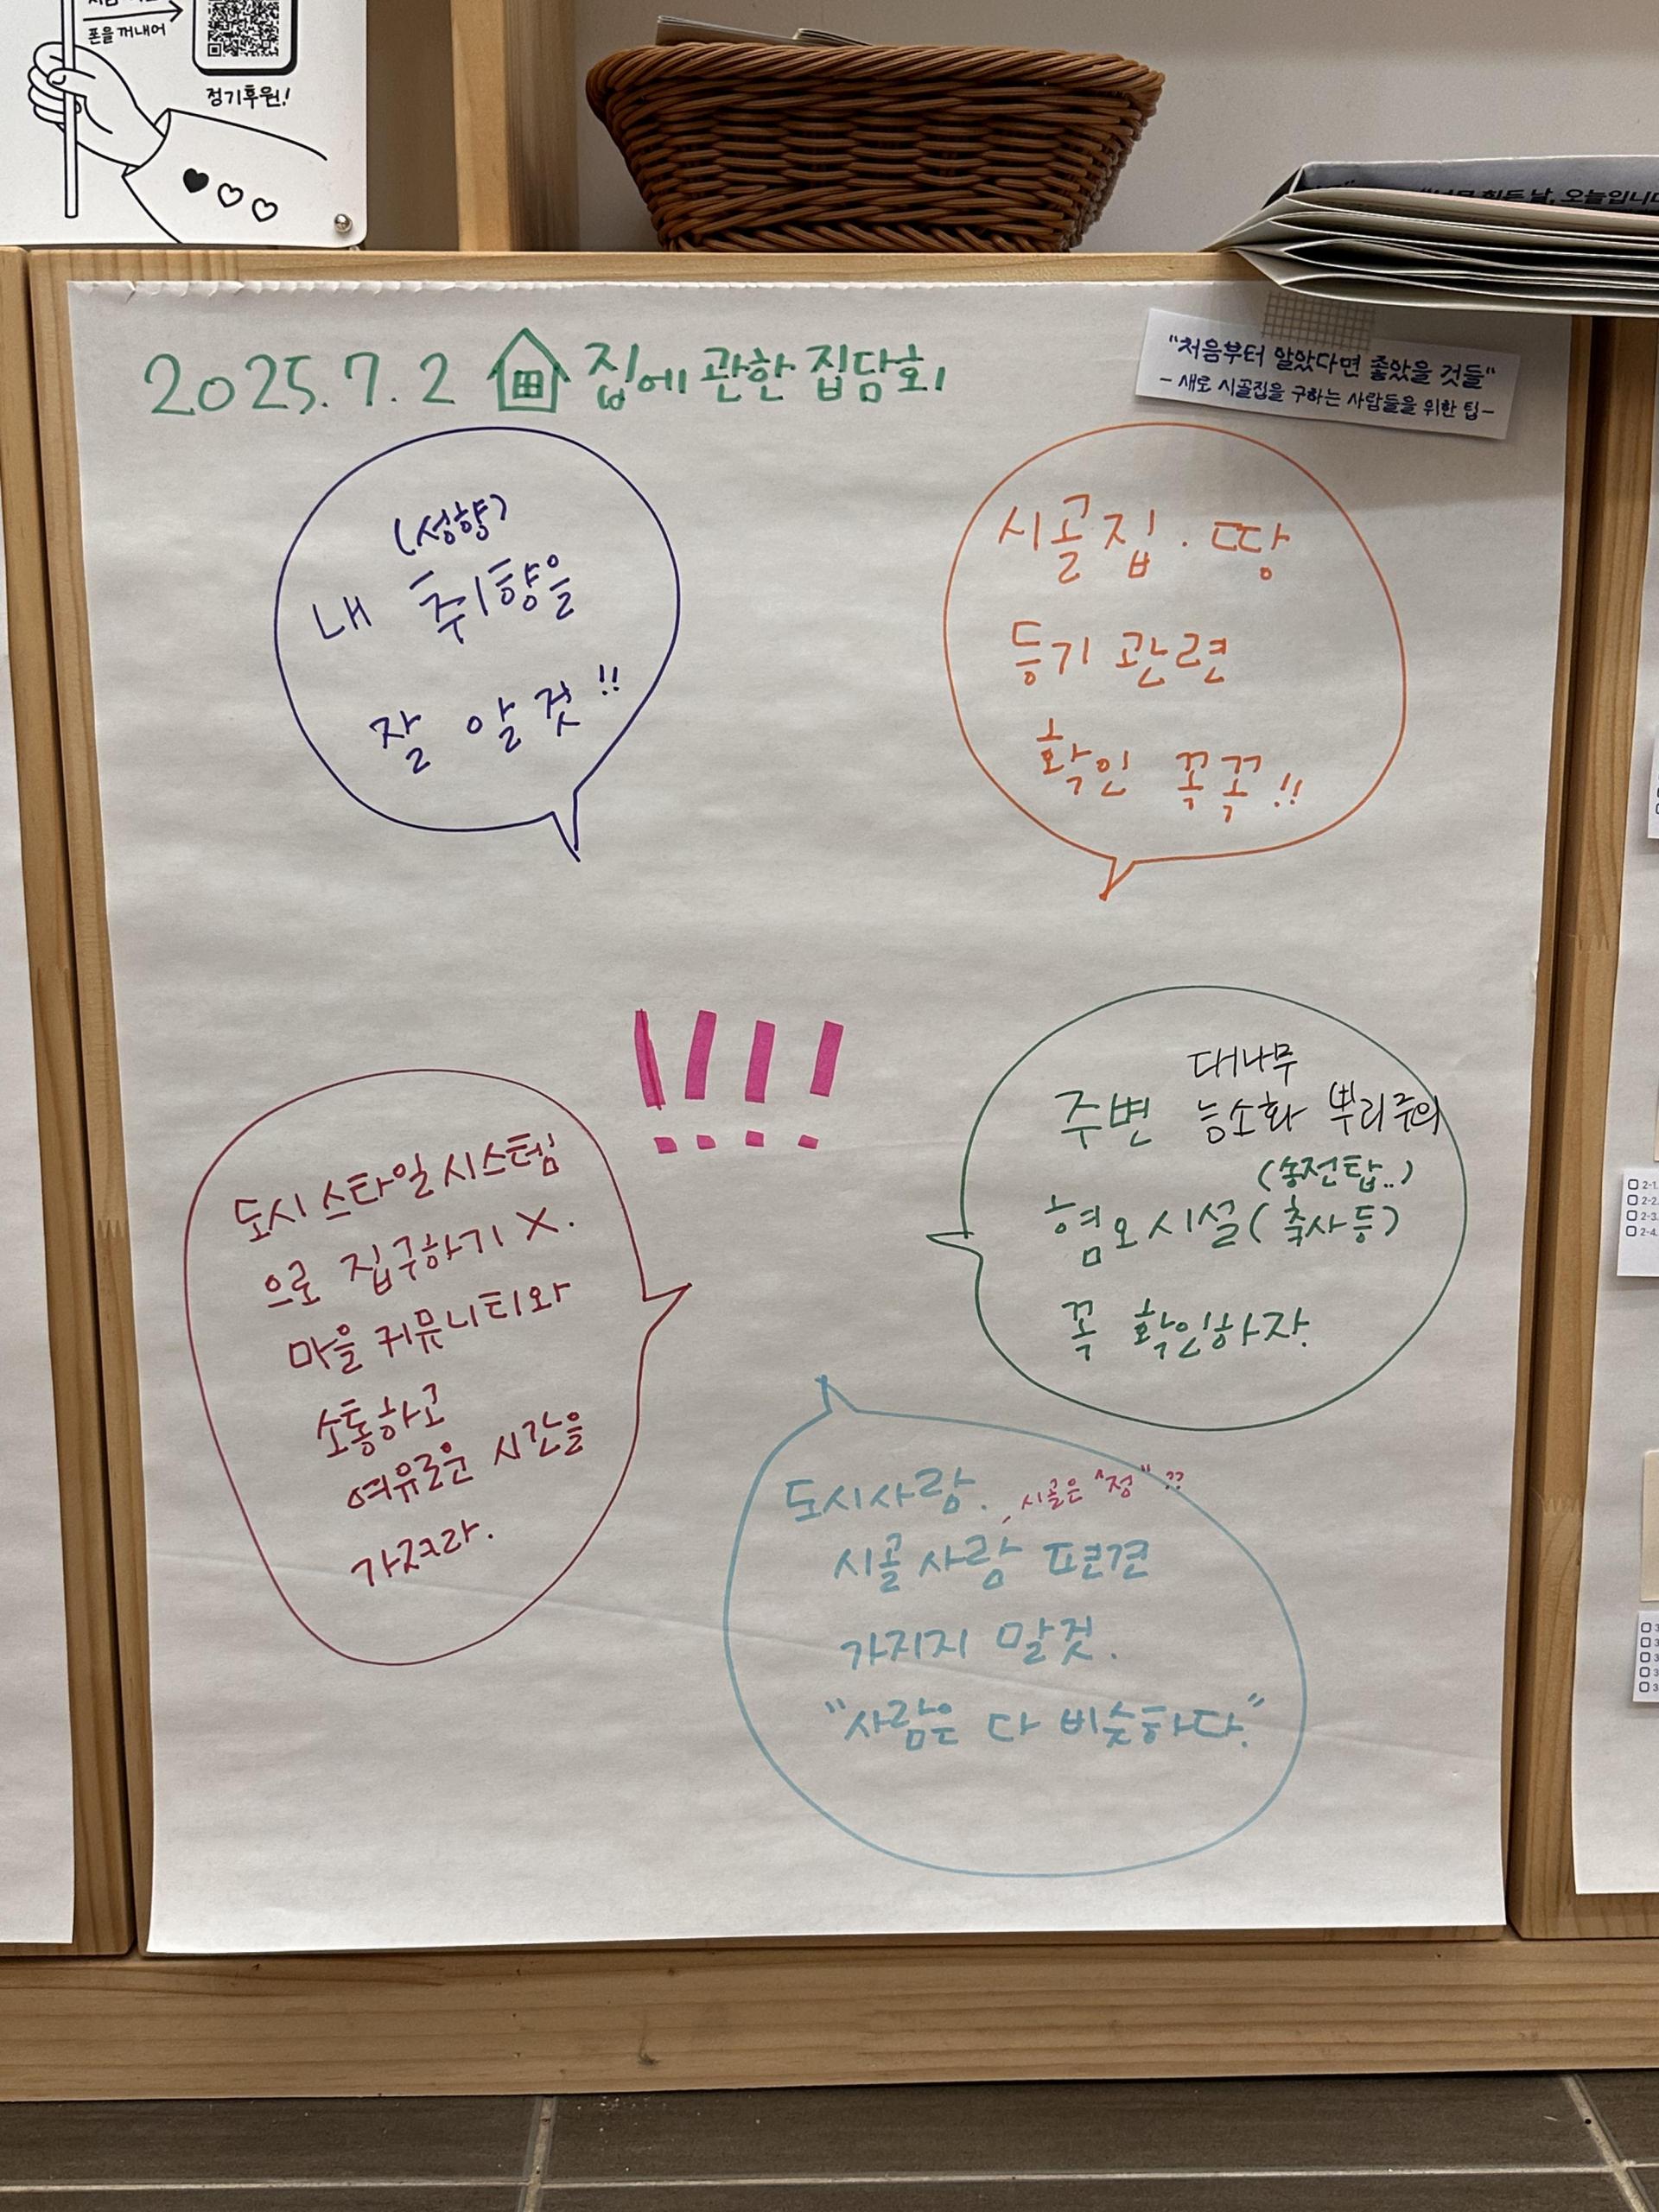 폰을 꺼내어
정기후원!
힘든 날, 오늘입니다
2025.7.2 집에 관한 집담회
"처음부터 알았다면 좋았을 것들"
- 새로 시골집을 구하는 사람들을 위한 팁-
(성향)
내 취향을
잘 알 것!!
시골집·땅
등기 관련
확인 꼭꼭!!
!!!!
대나무
주변 능소화 뿌리주의
(송전탑..)
혐오시설(축사등)
꼭 확인하자.
도시스타일시스템
으로 집구하기 X.
마을 커뮤니티와
소통하고
여유로운 시간을
가져라.
도시사람. 시골은 "정"??
시골 사람 편견
가지지 말것.
"사람은 다 비슷하다."
2-1.
2-2.
2-3.
2-4.